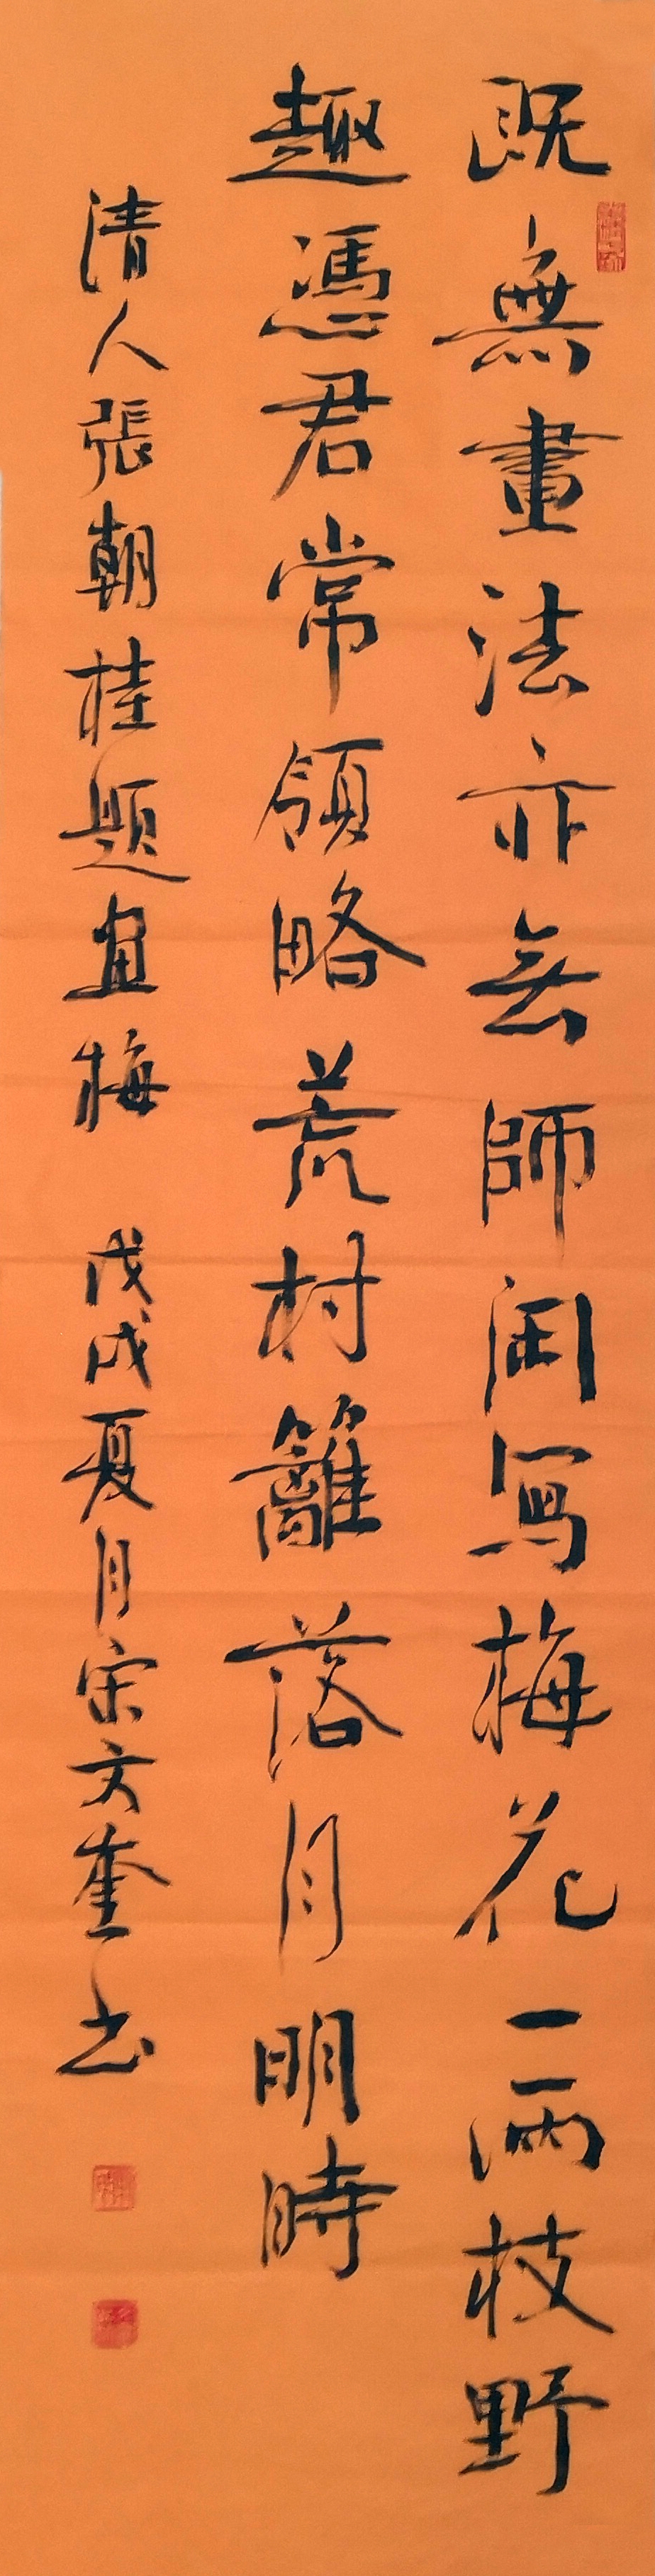 既無畫法亦無師閑寫梅花一兩枝野
趣憑君常領略荒村籬落月明時
清人張朝桂题画梅 戊戌夏月宋文奎书